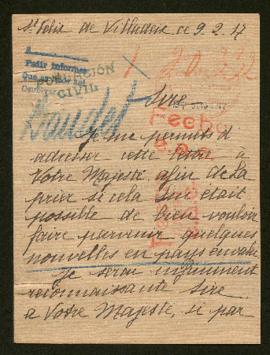 St Felix de Villadeix ce 9.2.17
Pedir informes
POBLACIÓN
CIVIL
Sire
Fecha
Je me permets d'
adresser cette lettre à
Votre Majesté afin de la
prier si cela Lui était
possible de bien vouloir
faire parvenir quelques
nouvelles en pays envahi
Je serai infiniment
reconnaissante Sire
à Votre Majesté, si par